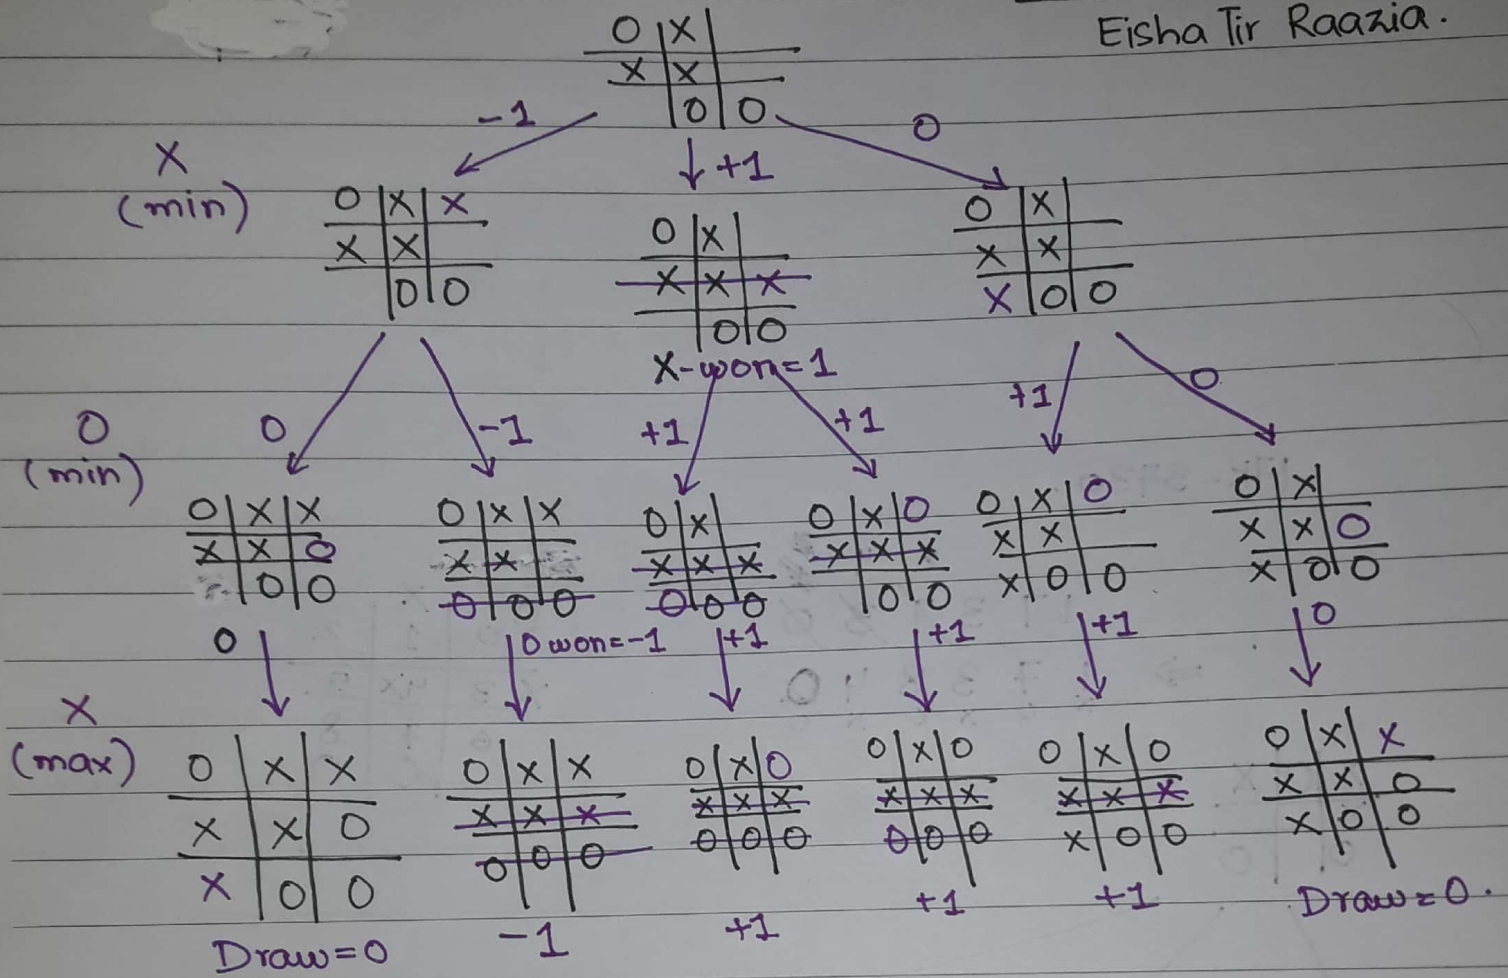 Eisha Tir Raazia.
O X
X X
O O
-1 +1 0
X
(min)
O X X
X X
O O
O X
X X X
O O
X-won=1
O X
X X
X O O
O
(min)
0 -1 +1 +1 +1 0
O X X
X X O
O O
O X X
X X
O O O
O X
X X X
O O O
O X O
X X X
O O
O X O
X X
X O O
O X
X X O
X O O
0 O won=-1 +1 +1 +1 0
X
(max)
O X X
X X O
X O O
Draw=0
O X X
X X X
O O O
-1
O X O
X X X
O O O
+1
O X O
X X X
O O O
+1
O X O
X X X
X O O
+1
O X X
X X O
X O O
Draw=0.